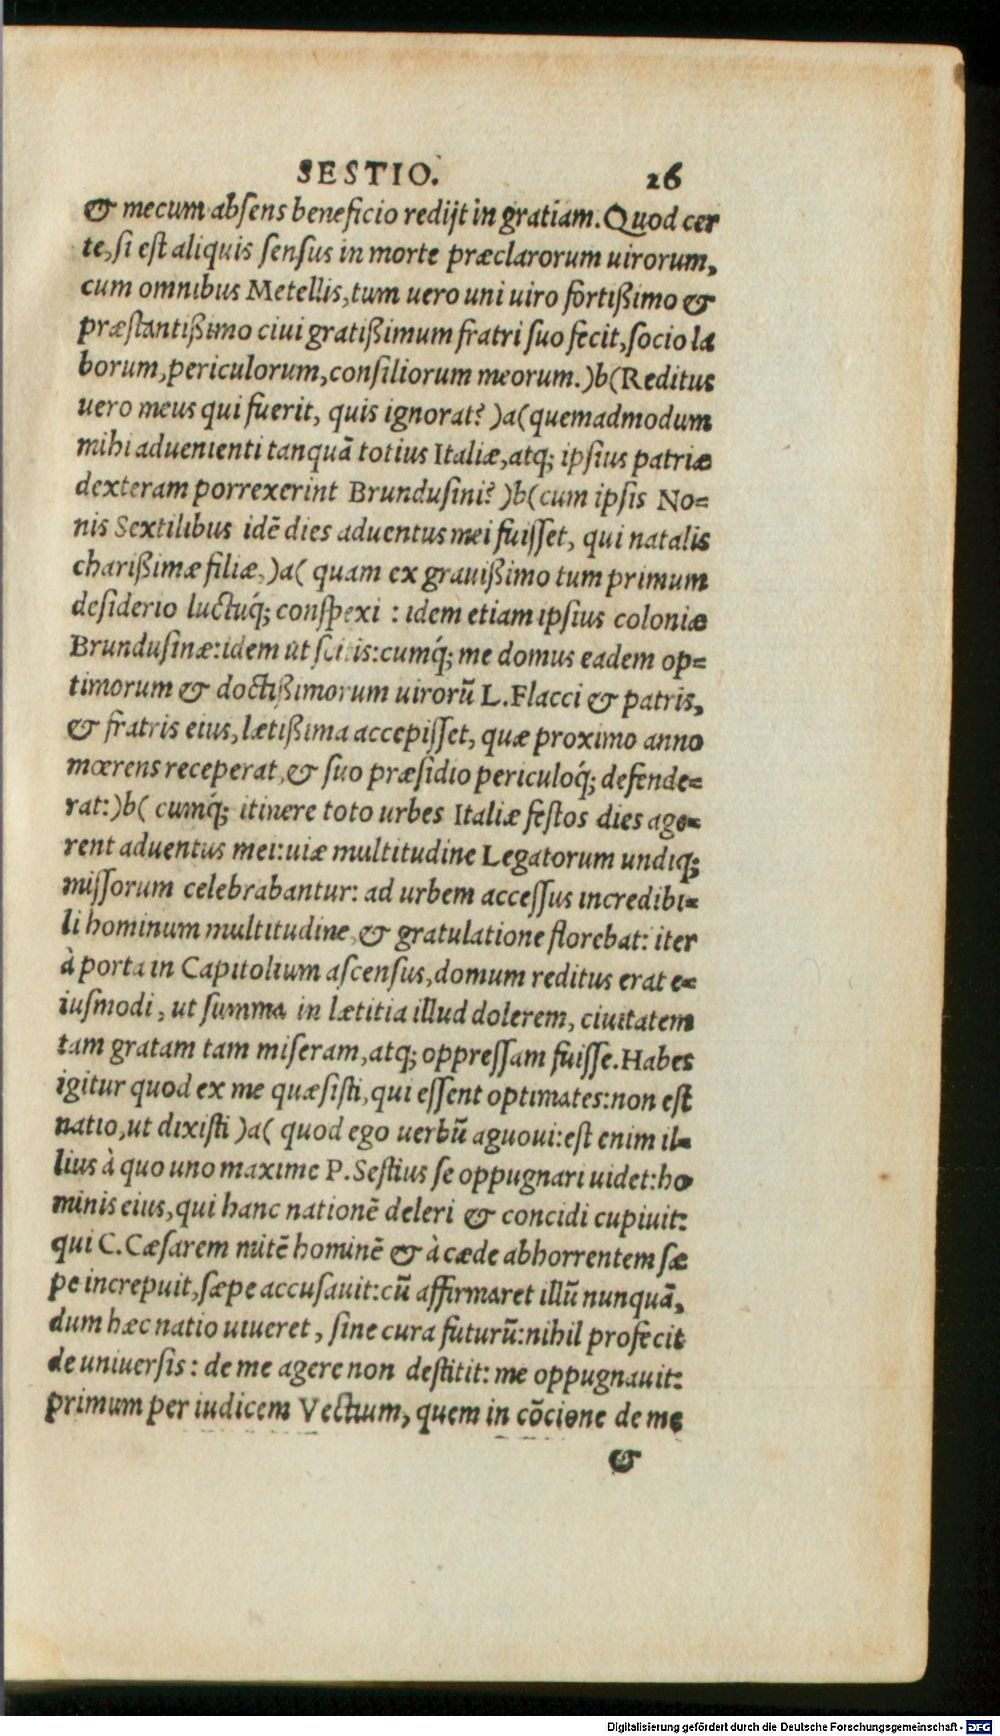 SESTIO. 26
& mecum absens beneficio redijt in gratiam. Quod cer
te, si est aliquis sensus in morte præclarorum uirorum,
cum omnibus Metellis, tum uero uni uiro fortißimo &
præstantißimo ciui gratißimum fratri suo fecit, socio la
borum, periculorum, consiliorum meorum.)b(Reditus
uero meus qui fuerit, quis ignorat? )a(quemadmodum
mihi aduenienti tanquā totius Italiæ, atq; ipsius patriæ
dexteram porrexerint Brundusini? )b(cum ipsis No=
nis Sextilibus idē dies aduentus mei fuisset, qui natalis
charißimæ filiæ,)a( quam ex grauißimo tum primum
desiderio luctuq́; conspexi : idem etiam ipsius coloniæ
Brundusinæ: idem ut scitis: cumq́; me domus eadem op=
timorum & doctißimorum uirorū L. Flacci & patris,
& fratris eius, lætißima accepisset, quæ proximo anno
mœrens receperat, & suo præsidio periculoq́; defende=
rat:)b( cumq́; itinere toto urbes Italiæ festos dies age=
rent aduentus mei: uiæ multitudine Legatorum undiq;
missorum celebrabantur: ad urbem accessus incredibi=
li hominum multitudine, & gratulatione florebat: iter
à porta in Capitolium ascensus, domum reditus erat e=
iusmodi, ut summa in lætitia illud dolerem, ciuitatem
tam gratam tam miseram, atq; oppressam fuisse. Habes
igitur quod ex me quæsisti, qui essent optimates: non est
natio, ut dixisti )a( quod ego uerbū aguoui: est enim il=
lius à quo uno maxime P. Sestius se oppugnari uidet: ho
minis eius, qui hanc nationē deleri & concidi cupiuit:
qui C. Cæsarem mitē hominē & à cæde abhorrentem sæ
pe increpuit, sæpe accusauit: cū affirmaret illū nunquā,
dum hæc natio uiueret, sine cura futurū: nihil profecit
de uniuersis: de me agere non destitit: me oppugnauit:
primum per iudicem Vectium, quem in cōcione de me
&
Digitalisierung gefördert durch die Deutsche Forschungsgemeinschaft - DFG